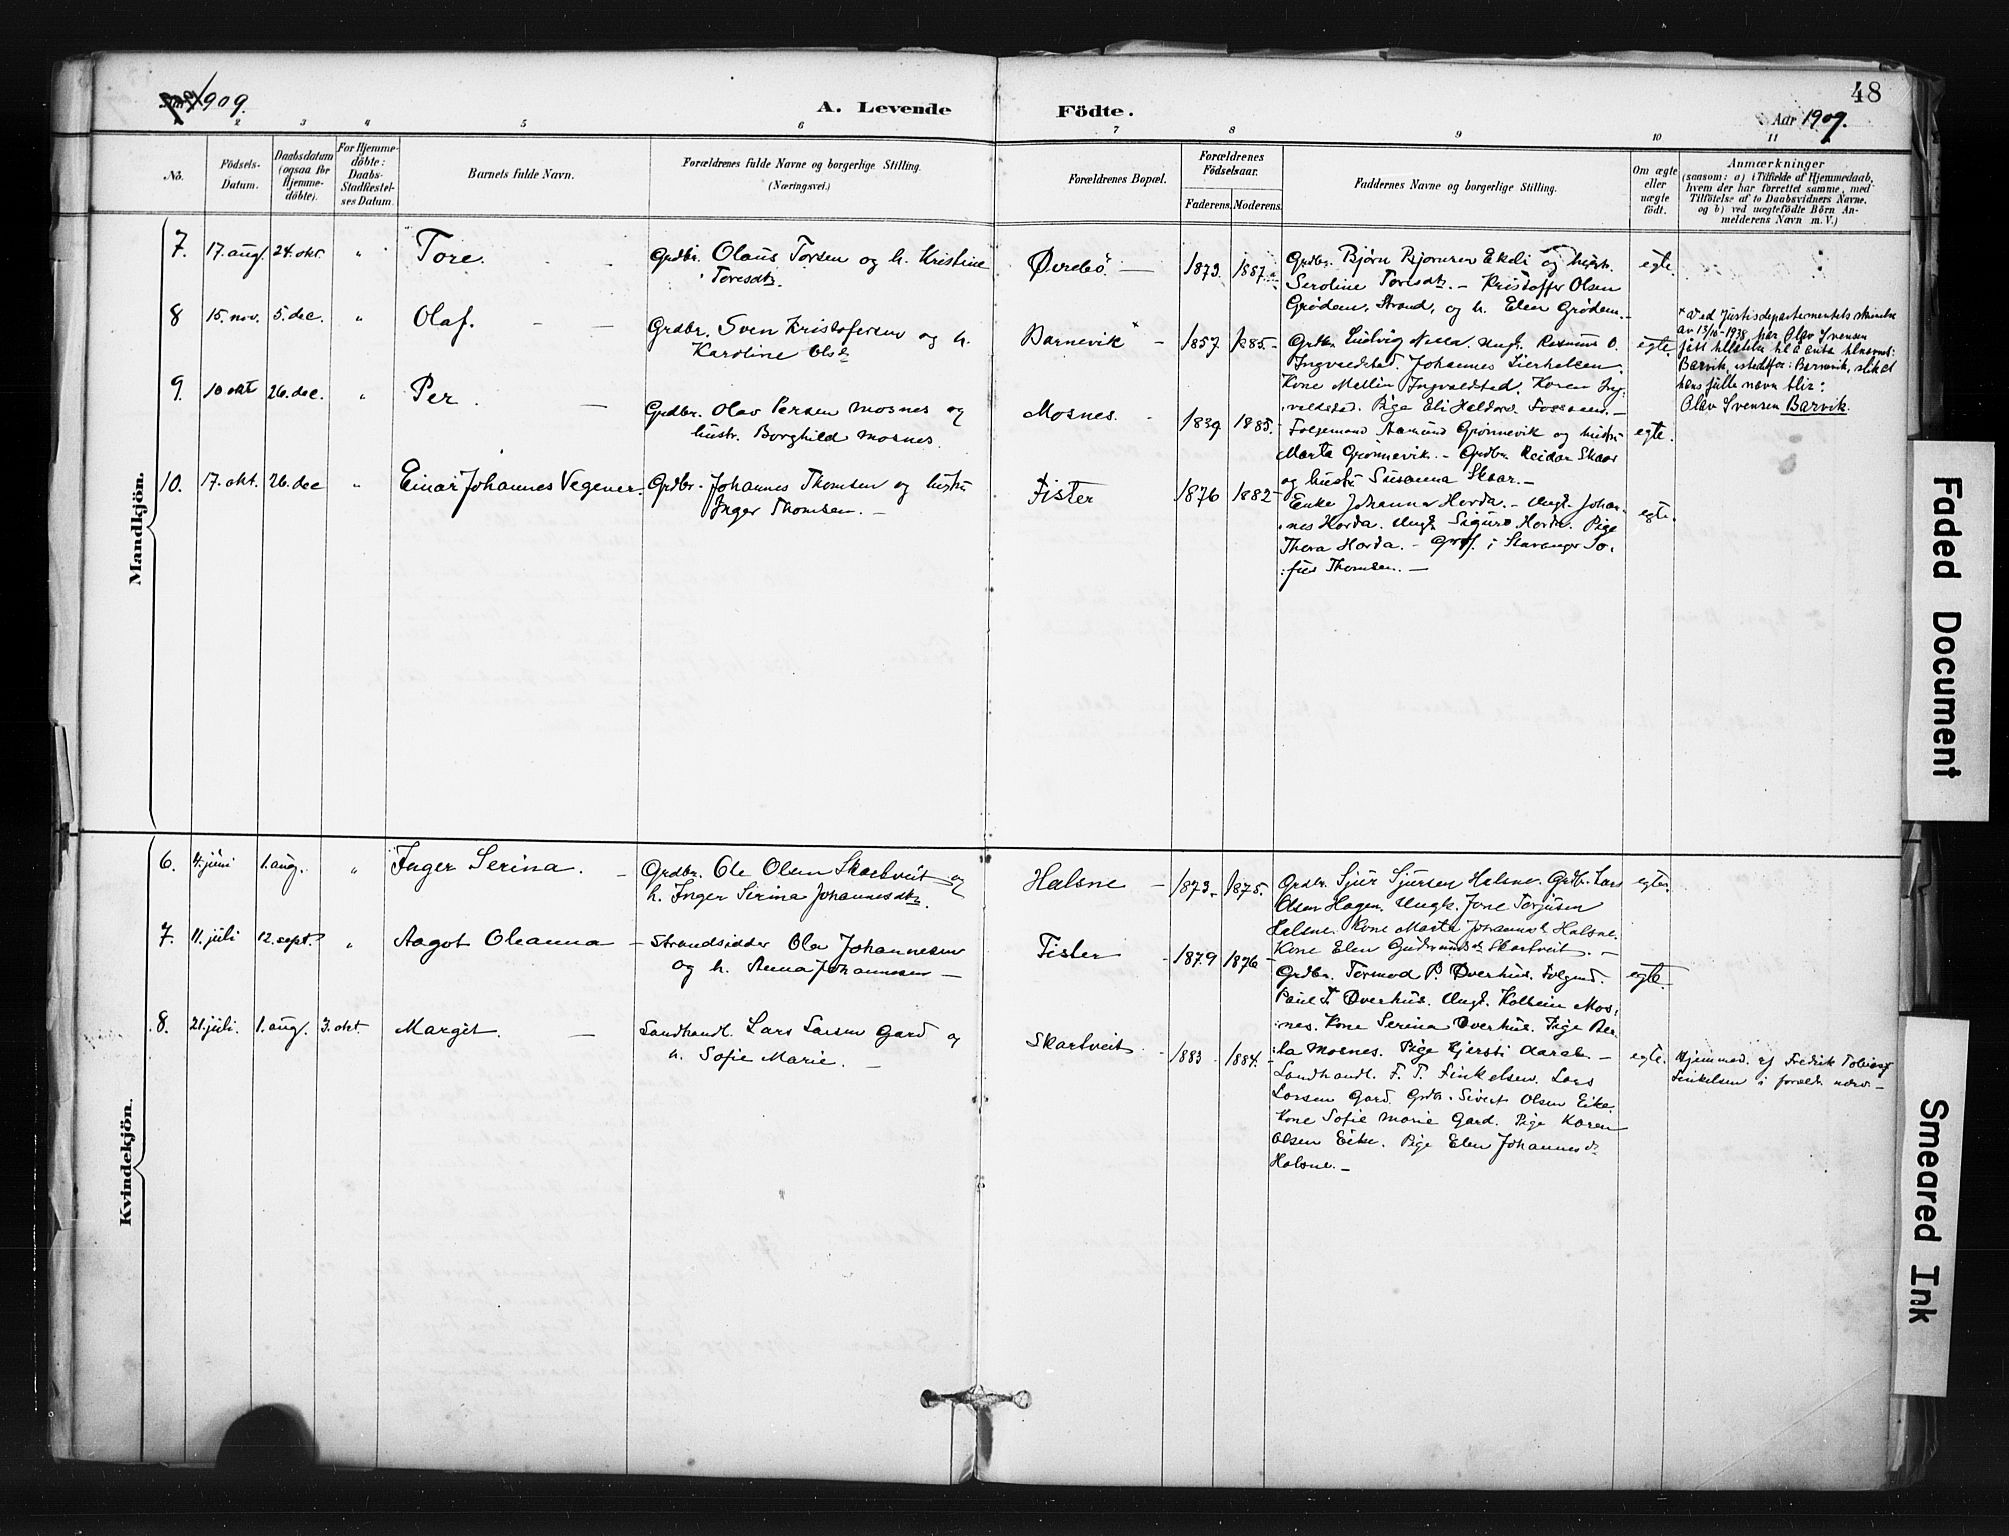 1909.
A. Levende
Födte.
48
Aar 1909.
2 3 4 5 6 7 8 9 10 11
No.
Födsels-
Datum.
Daabsdatum
(ogsaa for
Hjemme-
döbte).
For Hjemme-
döbte:
Daabs-
Stadfæstel-
ses Datum.
Barnets fulde Navn.
Forældrenes fulde Navne og borgerlige Stilling.
(Næringsvei.)
Forældrenes Bopæl.
Forældrenes
Födselsaar.
Faderens. Moderens.
Faddernes Navne og borgerlige Stilling.
Om ægte
eller
uægte
födt.
Anmærkninger
(saasom: a) i Tilfælde af Hjemmedaab,
hvem der har forrettet samme, med
Tilföielse af to Daabsvidners Navne.
og b) ved uægtefödte Börn An-
melderens Navn m. V.)
Mandkjön.
7. 17. aug. 24. okt. " Tore.
Grdbr. Olaus Torsen og h. Kristine
Toresdtr.
Øvrebö. 1873. 1887.
Grdbr. Bjørn Bjørnsen Ekeli og hustr.
Seroline Toresdtr. - Kristoffer Olsen
Grødem, Strand, og h. Elen Grødem.
egte.
8 15. nov. 5. dec. " Olaf.
Grdbr. Sven Kristofersen og h.
Karoline Olsdr
Barnevik x 1857 1885
Grdbr. Ludvig Nessa. Ungk. Rasmus O.
Ingvaldstad. Johannes Lierhelsen.
Kone Mallin Ingvaldstad. Karen Ing-
valdstad. Pige Eli Haldors. Fossaaen.
egte.
x Ved Justisdepartementets skrivelse
av 13/10-1938 har Olav Svensen
fått tilladelse til å endre tilnavnet:
Barvik, istedetfor: Barnevik, slik at
hans fulle navn blir:
Olav Svensen Barvik.
9. 10 okt 26. dec. " Per.
Grdbr. Olav Persen Mosnes og
hustr. Borghild Mosnes.
Mosnes. 1839 1885.
Folgemand Aamund Grønnevik og hustru
Marta Grønnevik. - Grdbr. Reidar Skaar
og hustr. Susanna Skaar.
egte.
10. 17. okt. 26. dec " Einar Johannes Vegener.
Grdbr. Johannes Thomsen og hustru
Inger Thomsen.
Fister 1876 1882
Enke Johanna Horda. Ungk. Johan-
nes Horda. Ungk. Sigurd Horda. Pige
Thora Horda. - i Stavanger So-
fus Thomsen.
egte.
Kvindekjön.
6. 4. juni 1. aug. " Inger Serina.
Grdbr. Ole Olsen Skartveit og
h. Inger Serina Johannesdtr.
Halsne 1873 1875.
Grdbr. Sjur Sjursen Halsne. Grdbr. Lars
Olsen Hagen. Ungk. Jone Torjusen
Halsne. Kone Marta Johannsd. Halsne.
Kone Elen Gudmundsdr Skartveit.
egte.
7. 11. juli 12. sept. " Aagot Oleanna
Strandsidder Ola Johannesen
og h. Anna Johannesen
Fister 1879 1876
Grdbr. Tormod P. Øverhus. Folgmd.
Paul T. Øverhus. Ungk. Kolbein Mos-
nes. Kone Serina Øverhus. Pige Ber-
ta Mosnes. Pige Kjersti Aarak.
egte.
8. 21. juli. 1. aug. 3. okt. Margit.
Landhandl. Lars Larsen Gard og
h. Sofie Marie.
Skartveit 1883 1884.
Landhandl. F. T. Finkelsen. Lars
Larsen Gard. Grdbr. Sivert Olsen Eike.
Kone Sofie Marie Gard. Pige Karen
Olsen Eike. Pige Elen Johannesdr
Halsne.
egte.
Hjemmed. af Fredrik Tobias
Finkelsen i foræld. nærv.
Faded Document
Smeared Ink